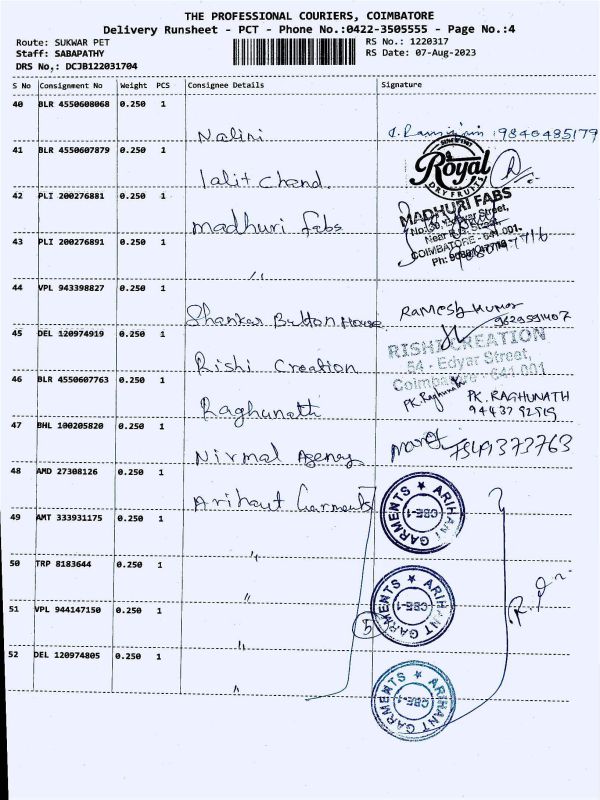 THE PROFESSIONAL COURIERS, COIMBATORE
Delivery Runsheet - PCT - Phone No.:0422-3505555 - Page No.:4
Route: SUKWAR PET
RS No.: 1220317
Staff: SABAPATHY
RS Date: 07-Aug-2023
DRS No,: DCJB122031704
S No Consignment No Weight PCS Consignee Details Signature
40 BLR 4550608068 0.250 1
Nalini 9840485179
41 BLR 4550607879 0.250 1
Lalit Chand.
Royal
DRY FRUITS
42 PLI 200276881 0.250 1
Madhuri Fabs
MADHURI FABS
COIMBATORE - 641 001.
43 PLI 200276891 0.250 1
"
44 VPL 943398827 0.250 1
Shankar Button House
Ramesh Kumar
45 DEL 120974919 0.250 1
Rishi Creation
RISHI CREATION
54 - Edyar Street,
Coimbatore - 641 001
46 BLR 4550607763 0.250 1
Raghunath
PK. Raghunath
PK. RAGHUNATH
47 BHL 100205820 0.250 1
Nirmal Agency
48 AMD 27308126 0.250 1
Arihant Garments
ARIHANT GARMENTS
CBE-1
49 AMT 333931175 0.250 1
"
50 TRP 8183644 0.250 1
"
ARIHANT GARMENTS
CBE-1
51 VPL 944147150 0.250 1
"
5
52 DEL 120974805 0.250 1
"
ARIHANT GARMENTS
CBE-1